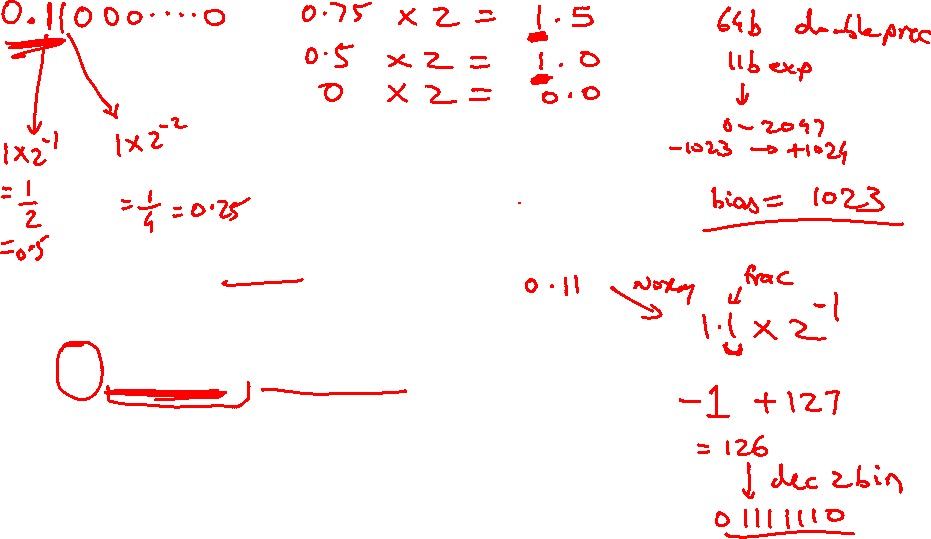 0.11000....0
1x2^-1
= 1/2
=0.5
1x2^-2
= 1/4 = 0.25
0.75 x 2 = 1.5
0.5 x 2 = 1.0
0 x 2 = 0.0
64b double prec
11b exp
↓
0-2047
-1023 → +1024
bias = 1023
0.11
Norm
frac
1.1 x 2^-1
-1 +127
= 126
↓ dec 2 bin
01111110